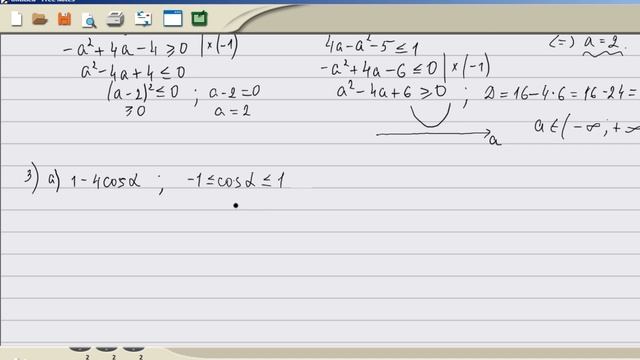 -a²+4a-4≥0 |×(-1)
a²-4a+4≤0
(a-2)²≤0 ; a-2=0
≥0 a=2
4a-a²-5≤1
-a²+4a-6≤0 |×(-1)
a²-4a+6≥0 ; D=16-4·6=16-24=
a
(=) a=2.
a∈(-∞;+∞
3) a) 1-4cosα ; -1≤cosα≤1
2 2 2